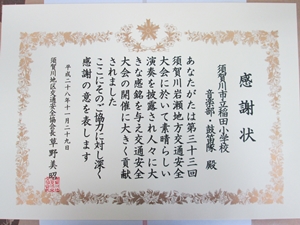 感謝状
須賀川市立稲田小学校
音楽部、鼓笛隊 殿
あなたがたは第三十三回
須賀川岩瀬地方交通安全
大会に於いて素晴らしい
演奏を披露され人々に大
きな感銘を与え交通安全
大会の開催に大きく貢献
されました
ここにそのご協力に対し深く
感謝の意を表します
平成二十八年十一月二十九日
須賀川地区交通安全協会長 草野美昭